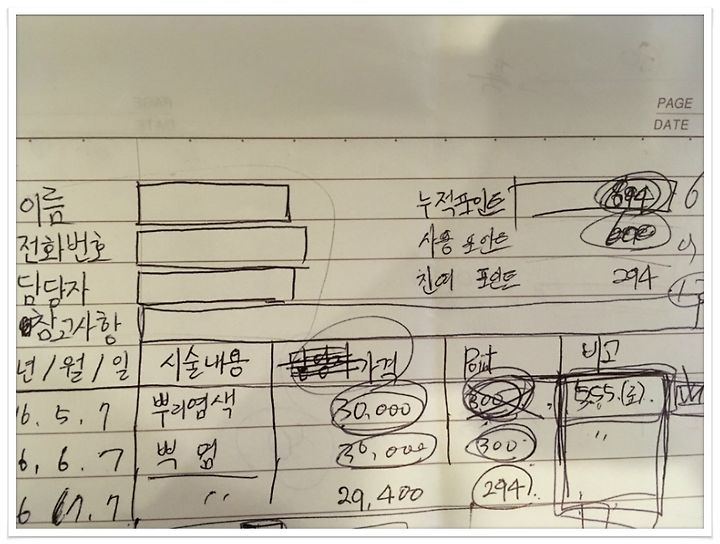 PAGE
DATE
이름 누적포인트 894
전화번호 사용 포인트 600
담당자 잔여 포인트 294
참고사항
년/월/일 시술내용 가격 Point 비고
6.5.7 뿌리염색 30,000 300 555.(로).
6.6.7 뿍 염 30,000 300 〃
6 7.7 〃 29,400 294